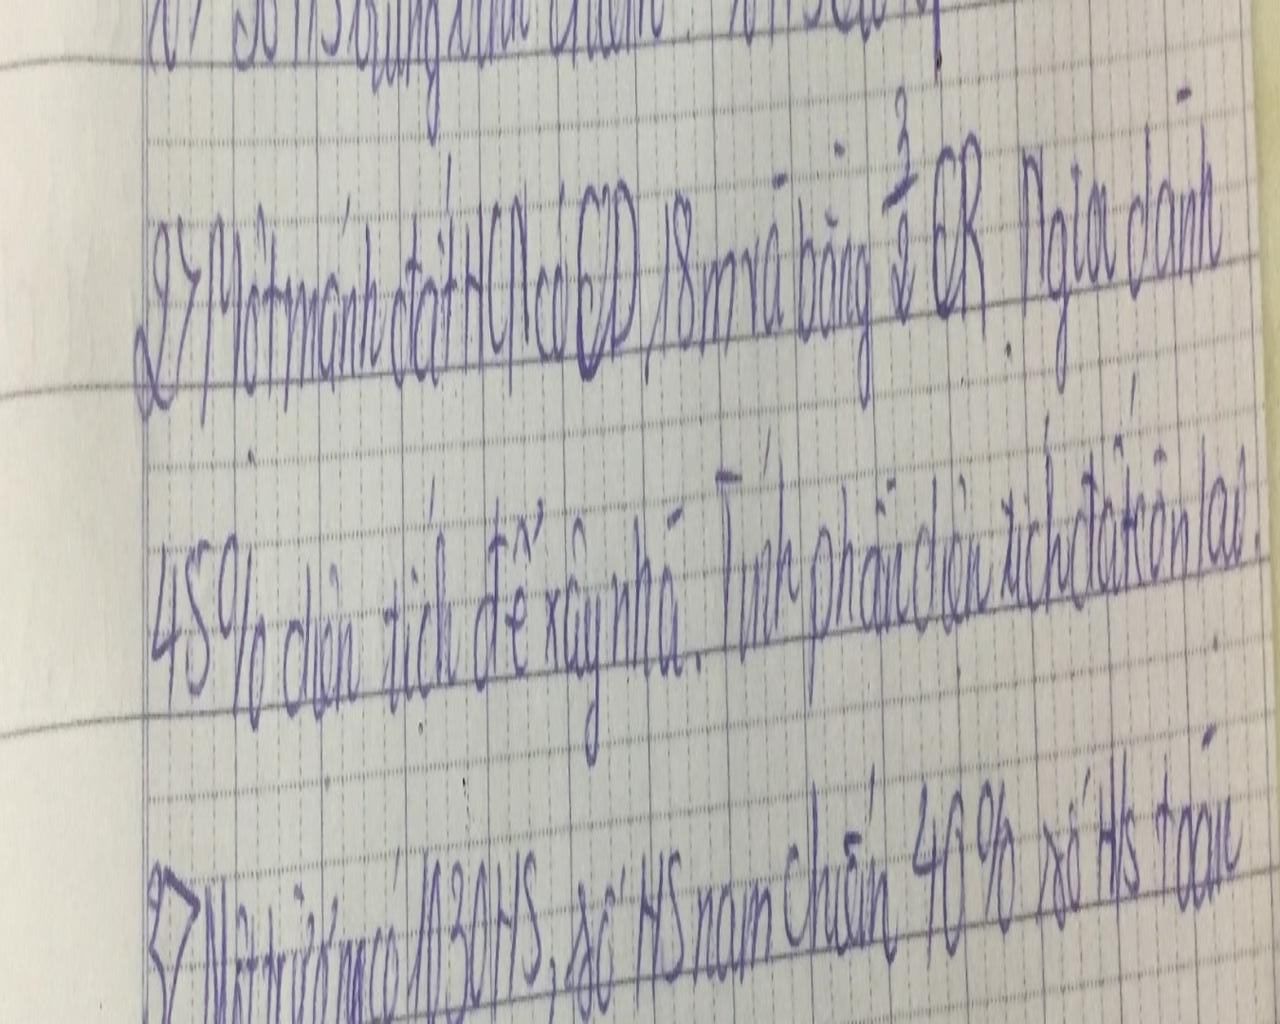 2> Một mảnh đất HCN có CD 18m và bằng 3/2 CR. Ngta dành
45% diện tích để xây nhà. Tính phần diện tích đất còn lại.
3> Một trường có 1030HS, số HS nam chiếm 40% số Hs toàn